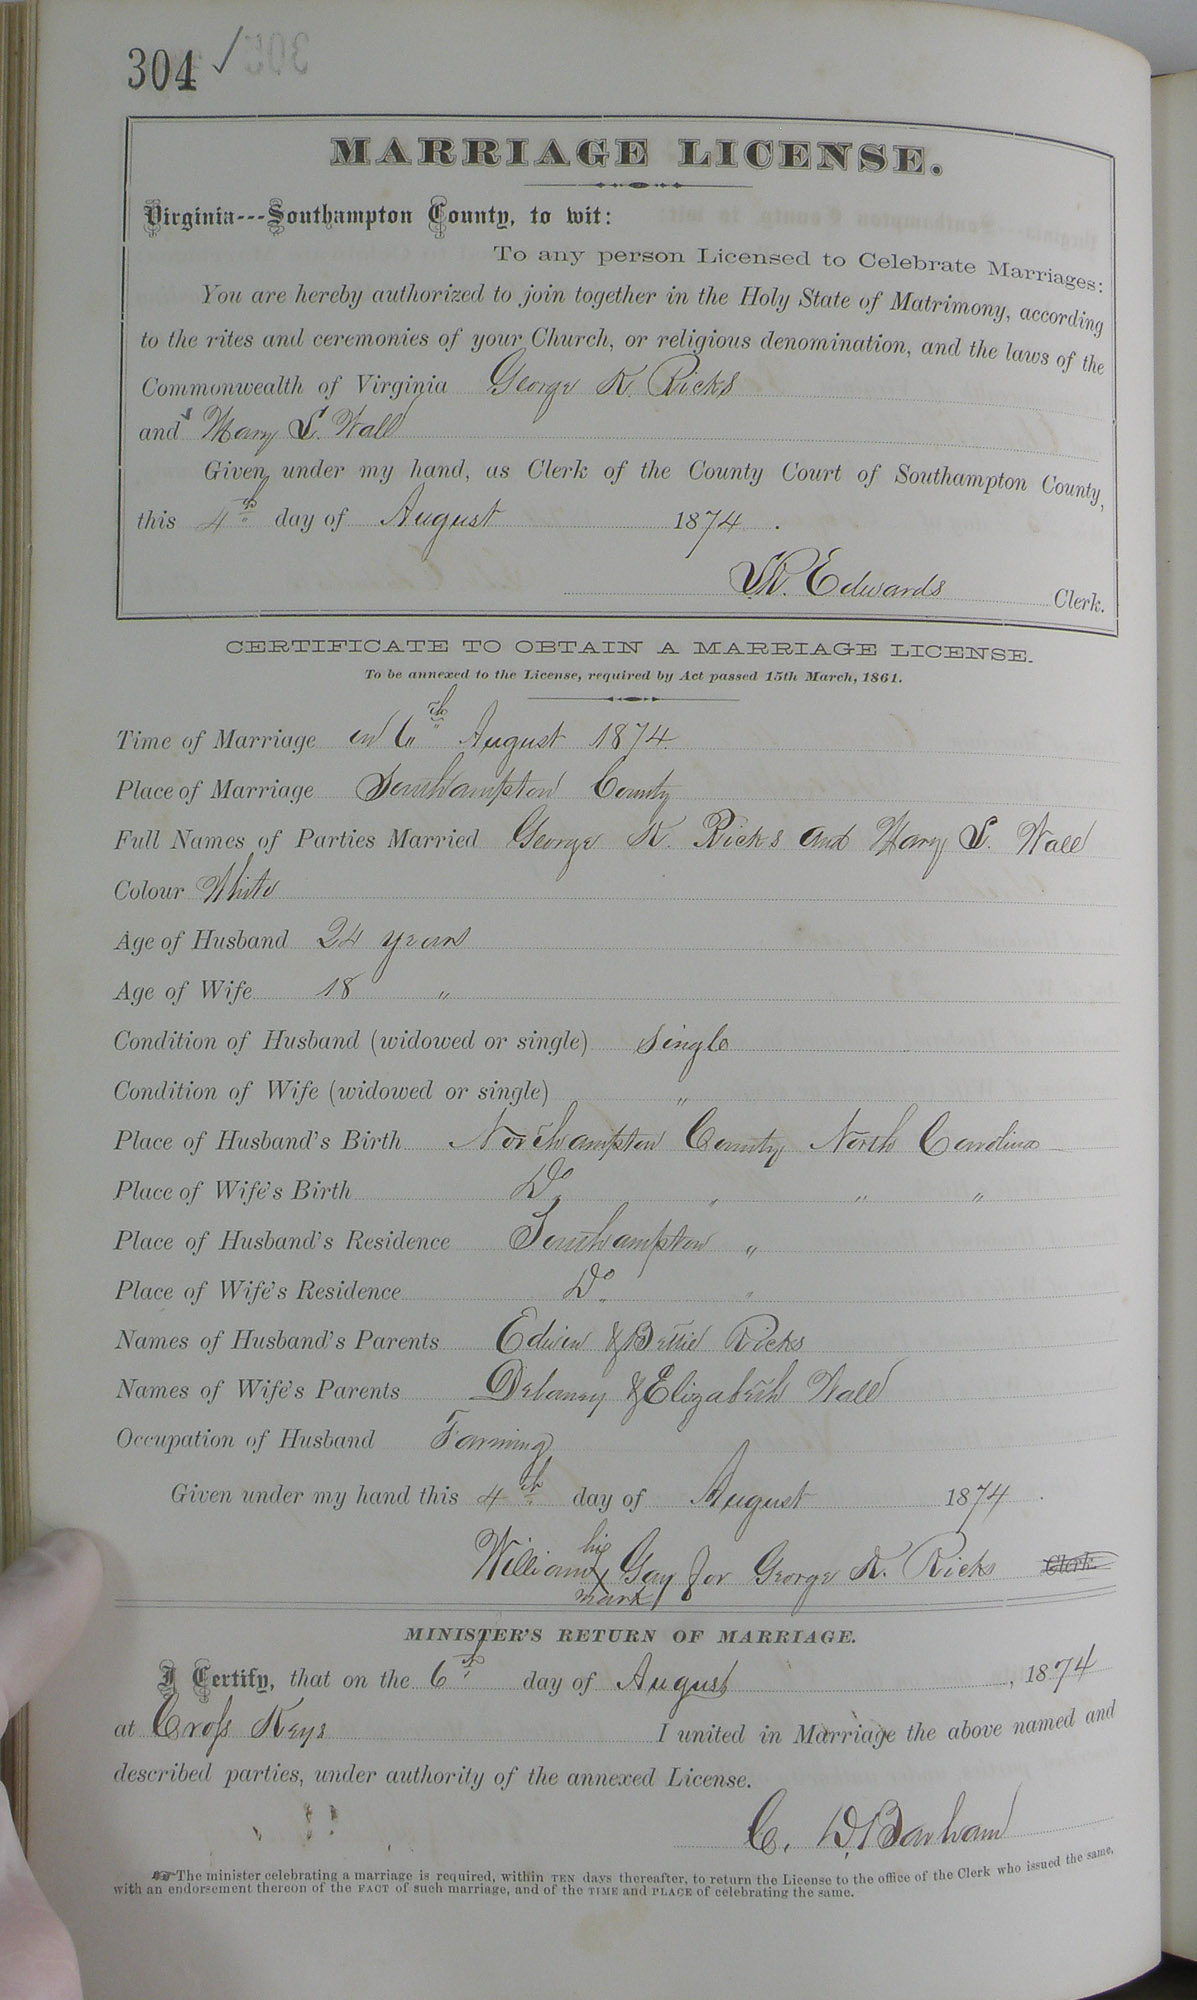 304 ✓
MARRIAGE LICENSE.
Virginia---Southampton County, to wit:
To any person Licensed to Celebrate Marriages:
You are hereby authorized to join together in the Holy State of Matrimony, according
to the rites and ceremonies of your Church, or religious denomination, and the laws of the
Commonwealth of Virginia George R. Ricks
and Mary S. Wall
Given under my hand, as Clerk of the County Court of Southampton County,
this 4th day of August 1874.
Edwards Clerk.
CERTIFICATE TO OBTAIN A MARRIAGE LICENSE.
To be annexed to the License, required by Act passed 15th March, 1861.
Time of Marriage on 6th August 1874
Place of Marriage Southampton County
Full Names of Parties Married George R. Ricks and Mary S. Wall
Colour White
Age of Husband 24 years
Age of Wife 18 "
Condition of Husband (widowed or single) Single
Condition of Wife (widowed or single) "
Place of Husband's Birth Northampton County North Carolina
Place of Wife's Birth Do " " "
Place of Husband's Residence Southampton "
Place of Wife's Residence Do "
Names of Husband's Parents Edwin & Bettie Ricks
Names of Wife's Parents Delaney & Elizabeth Wall
Occupation of Husband Farming
Given under my hand this 4th day of August 1874.
his
William X Gay for George R. Ricks Clerk.
mark
MINISTER'S RETURN OF MARRIAGE.
I Certify, that on the 6th day of August, 1874
at Cross Keys I united in Marriage the above named and
described parties, under authority of the annexed License.
C. W. Barham
☞The minister celebrating a marriage is required, within TEN days thereafter, to return the License to the office of the Clerk who issued the same,
with an endorsement thereon of the FACT of such marriage, and of the TIME and PLACE of celebrating the same.